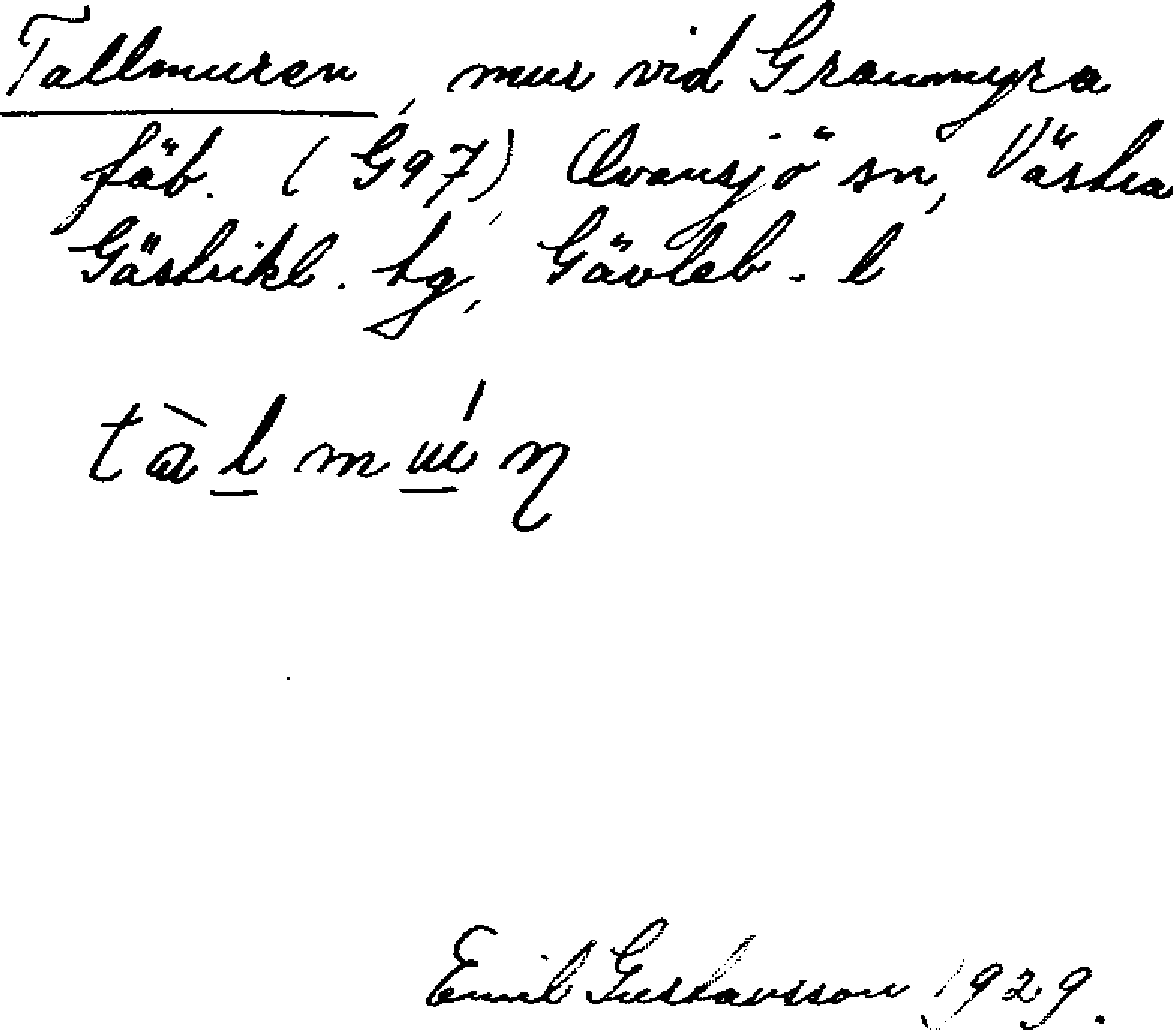 Tallmuren, mur vid Granmyra
fäb. (G97), Ovansjö sn, Västra
Gästrikl. tg, Gävleb. l
tàl mɯ́ŋ
Emil Gustavsson 1929.